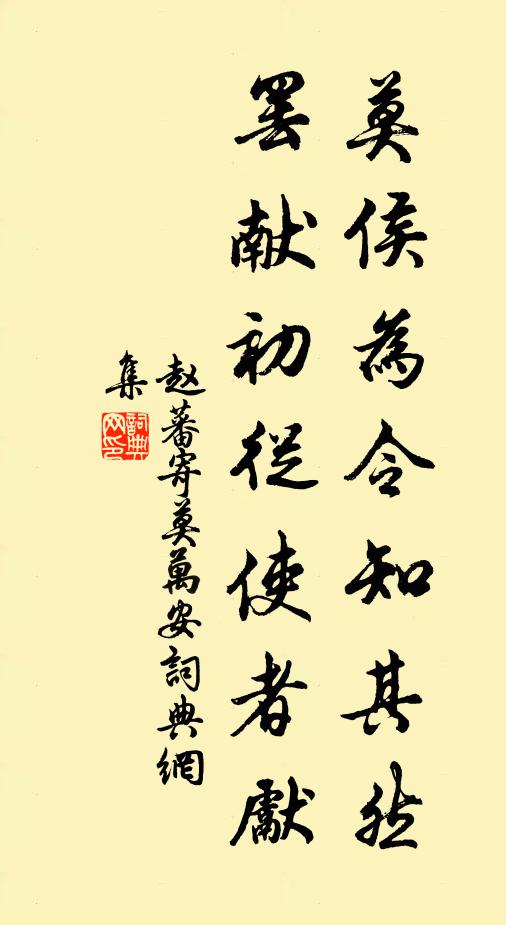 莫侯為令知其然
罢献初從使者獻
赵蕃寄莫萬安詞典網
集
詞典網印